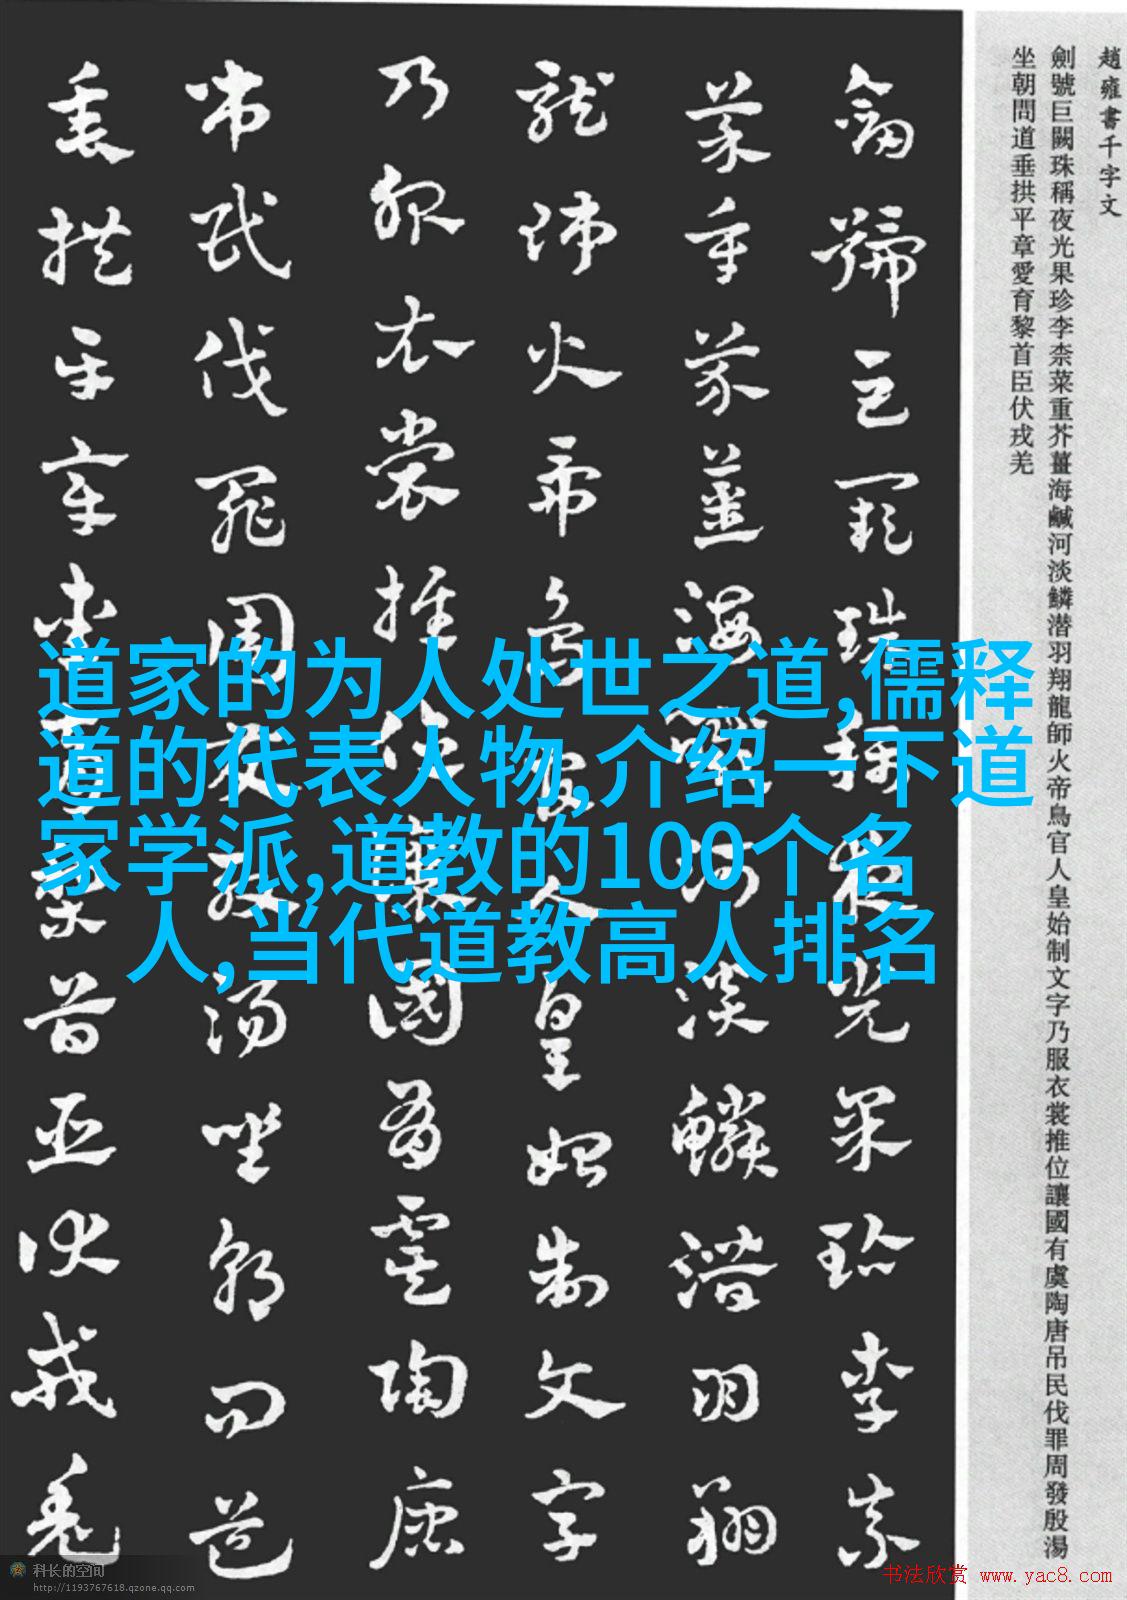 趙雍書千字文
劍號巨闕珠稱夜光果珍李柰菜重芥薑海鹹河淡鱗潜羽翔龍師火帝鳥官人皇始制文字乃服衣裳推位讓國有虞陶唐吊民伐罪周發殷湯
坐朝問道垂拱平章愛育黎首臣伏戎羌
劍號巨闕珠稱夜光果珍李柰
菜重芥薑海鹹河淡鱗潜羽翔
龍師火帝鳥官人皇始制文字
乃服衣裳推位讓國有虞陶唐
吊民伐罪周發殷湯坐朝問道
垂拱平章愛育黎首臣伏戎羌
道家的为人处世之道,儒释
道的代表人物,介绍一下道
家学派,道教的100个名
人,当代道教高人排名
科长的空间
http://1193767618.qzone.qq.com
书法欣赏 www.yac8.com